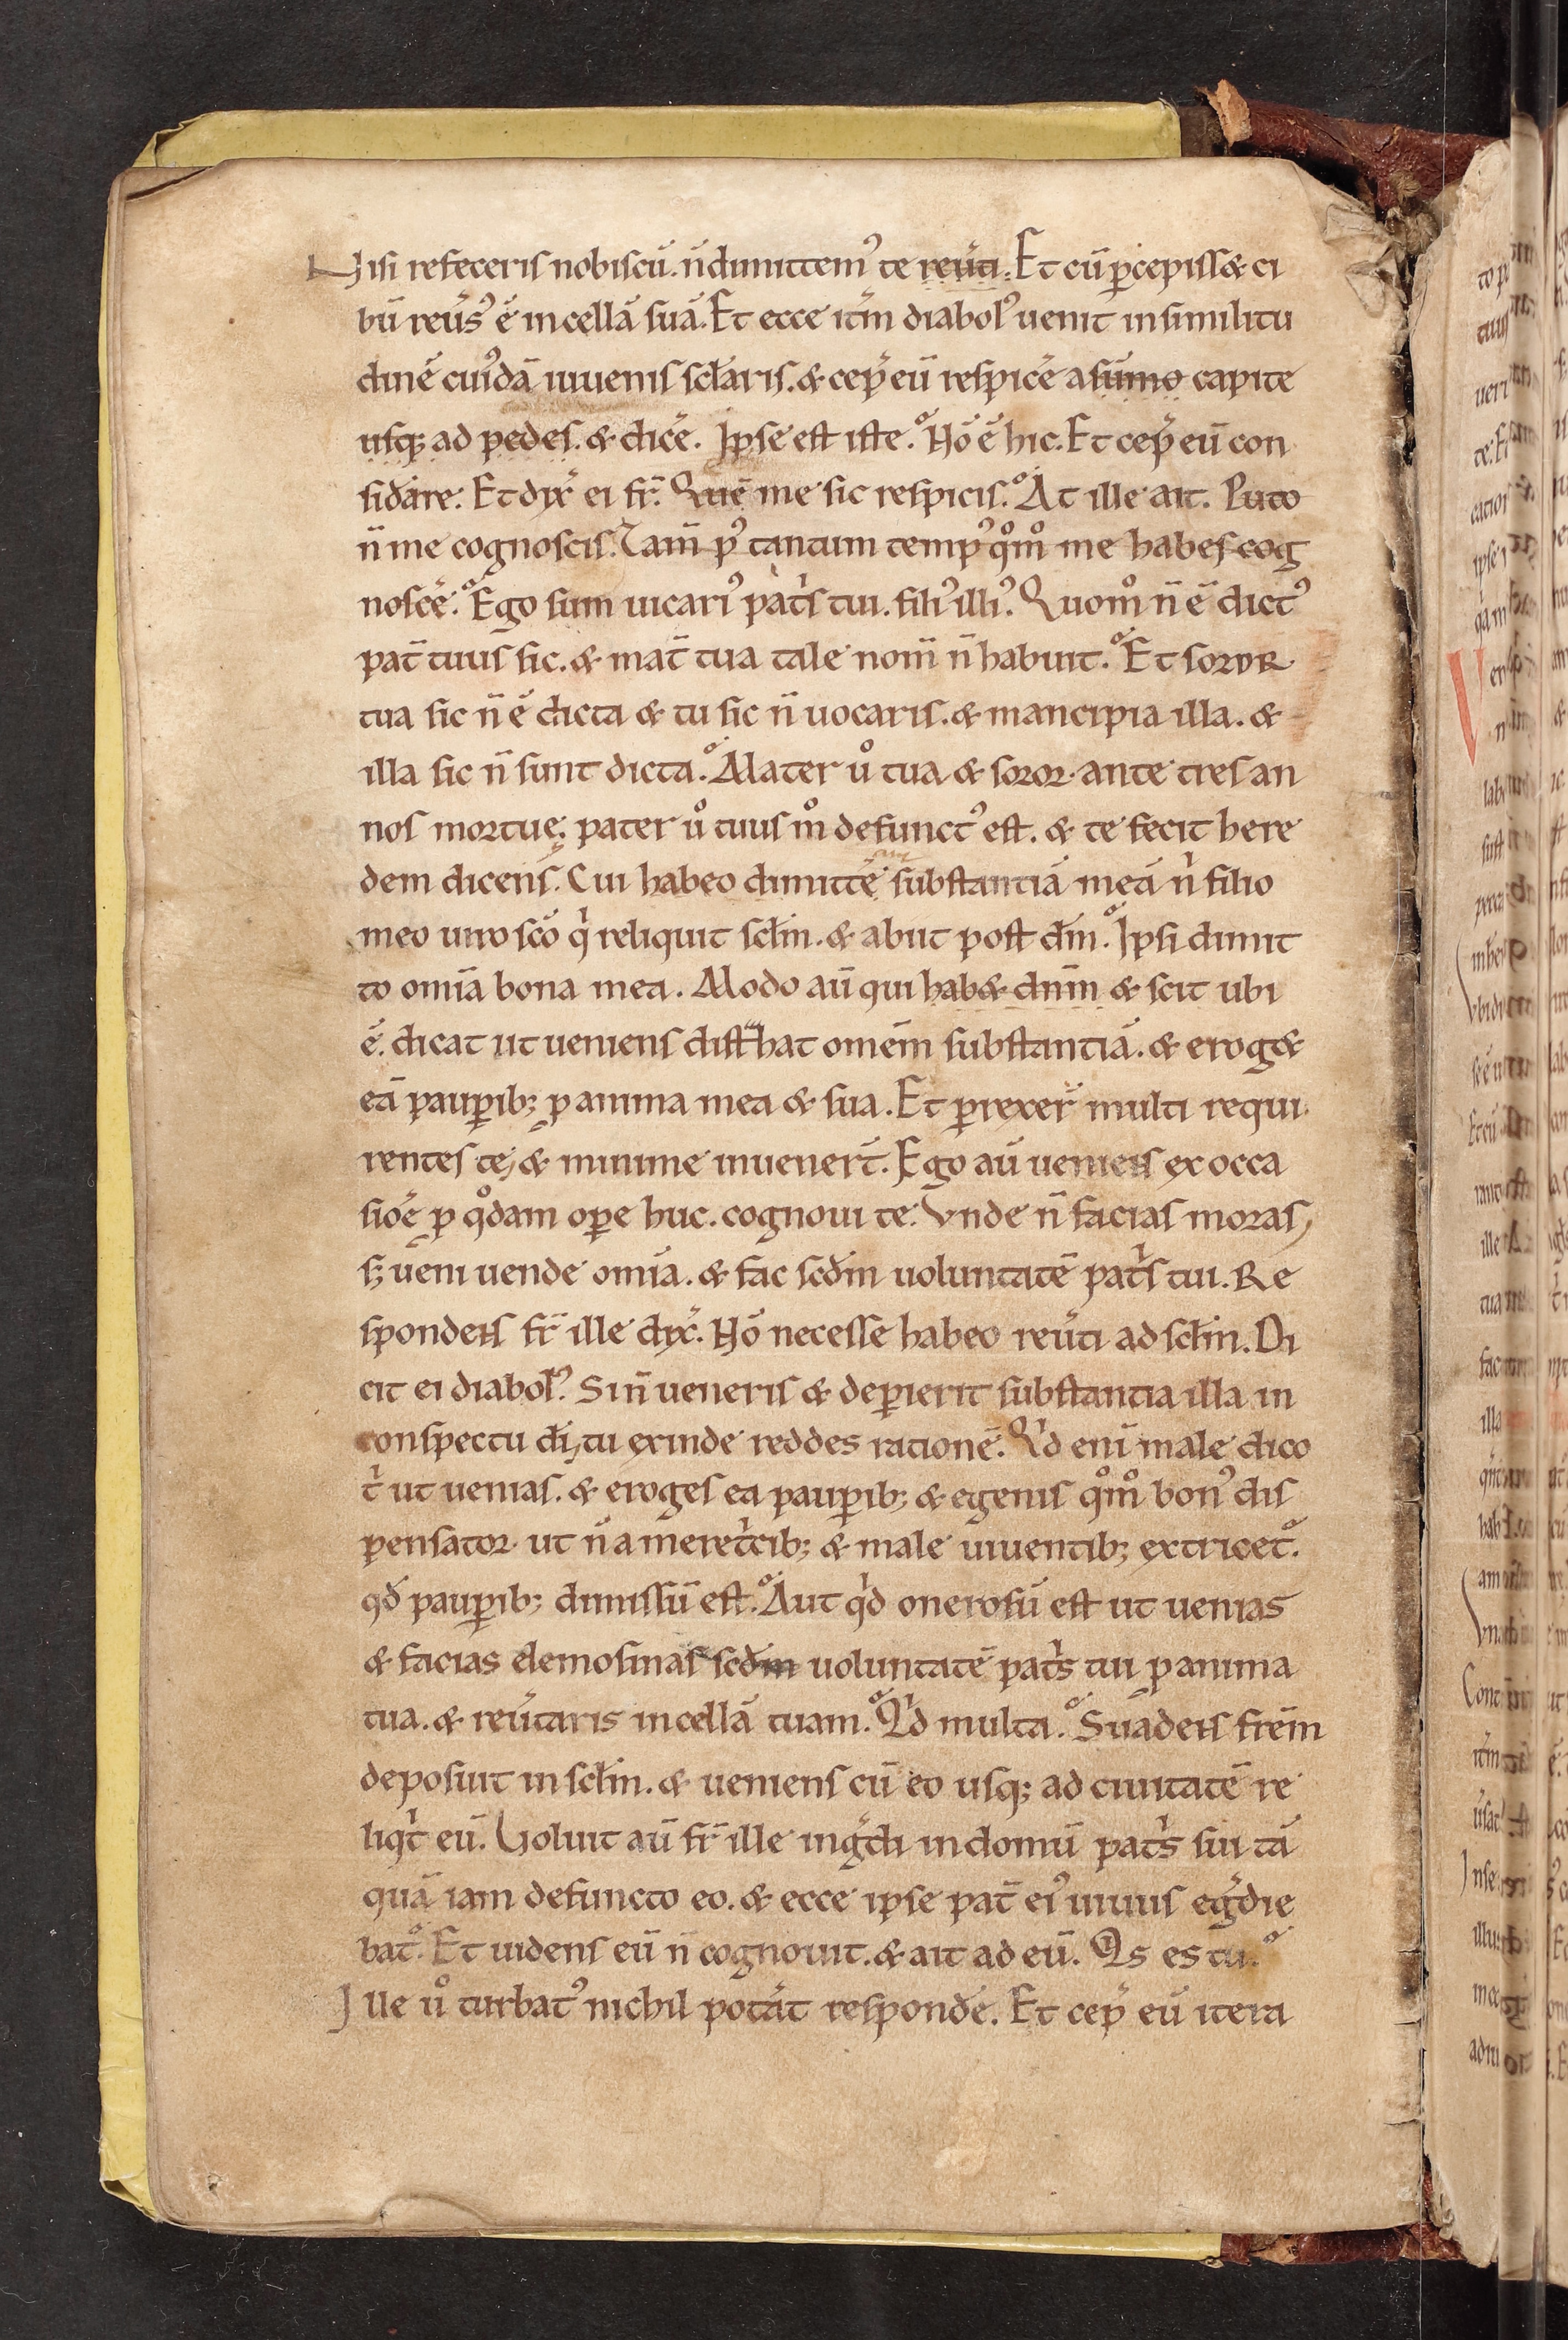 Nisi refeceris nobiscū. n̄ dimittemꝰ te reu̾ti. Et cū ꝑcepiss& ci
bū reu̾sꝰ ē in cellā suā. Et ecce itm̄ diabolꝰ uenit in similitu
dinē cuiꝰdā iuuenis scłaris. & cep̾ eū respicē a sūmo capite
usq; ad pedes. & dicē. Ipse est iste. Hō ē hic. Et cep̾ eū con
sid̾are. Et dix̾ ei fr̄. Quē me sic respicis. At ille ait. Puto
n̄ me cognoscis. Tam̄ pꝰ tantum tempꝰ qͦmͦ me habes cog
noscē. Ego sum uicariꝰ pat̾s tui. filiꝰ illiꝰ. Quomͦ n̄ ē dictꝰ
pat̄ tuus sic. & mat̄ tua tale nom̄ n̄ habuit. Et soror
tua sic n̄ ē dicta & tu sic n̄ uocaris. & mancipia illa. &
illa sic n̄ sunt dicta. Mater uͦ tua & soror ante tres an
nos mortuę; pater uͦ tuus mͦ defunctꝰ est. & te fecit here
dem dicens. Cui habeo dimittē substantiā meā nͥ filio
meo uiro sc̄o qͥ reliquit scłm. & abiit post dm̄. Ipsi dimit
to omīa bona mea. Modo aū qui hab& dnm̄ & scit ubi
ē. dicat ut ueniens distͥbat omēm substantiā. & erog&
eā pauꝑib; ꝓ anima mea & sua. Et ꝑrexer̄ multi requi
rentes te, & minime inuenert̄. Ego aū ueniens ex occa
siōe ꝓ qͦdam oꝑe huc. cognoui te. Vnde n̄ facias moras,
s; ueni uende omīa. & fac scdm̄ uoluntatē patͥs tui. Re
spondens fr̄ ille dix̾. Hō necesse habeo reu̾ti ad scłm. Di
cit ei diabolꝰ. Si n̄ ueneris & deꝑierit substantia illa in
conspectu dī, tu exinde reddes rationē. Qͥd enī male dico
tͥ ut uenias. & eroges ea pauꝑib; & egenis qͦmͦ bonꝰ dis
pensator. ut n̄ a meretͥcib; & male uiuentib; extricet̾.
qd̄ pauꝑib; dimissū est. Aut qͥd onerosū est ut uenias
& facias elemosinas scdm̄ uoluntatē patͥs tui ꝓ anima
tua. & reu̾taris in cellā tuam. Qͥd multa. Suadens frēm
deposuit in scłm. & ueniens cū eo usq; ad ciuitatē re
liqͥt eū. Voluit aū fr̄ ille ing̾di in domū patͥs sui tā
quā iam defuncto eo. & ecce ipse pat̄ eiꝰ uiuus eg̾die
bat̾. Et uidens eū n̄ cognouit. & ait ad eū. Qͥs es tu.
Ille uͦ turbatꝰ nichil pot̾at respondē. Et cep̾ eū itera